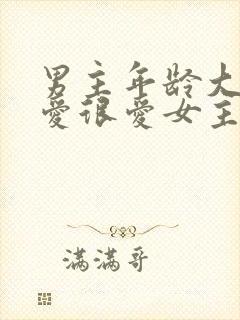 男主年龄大
爱很爱女主
满满哥